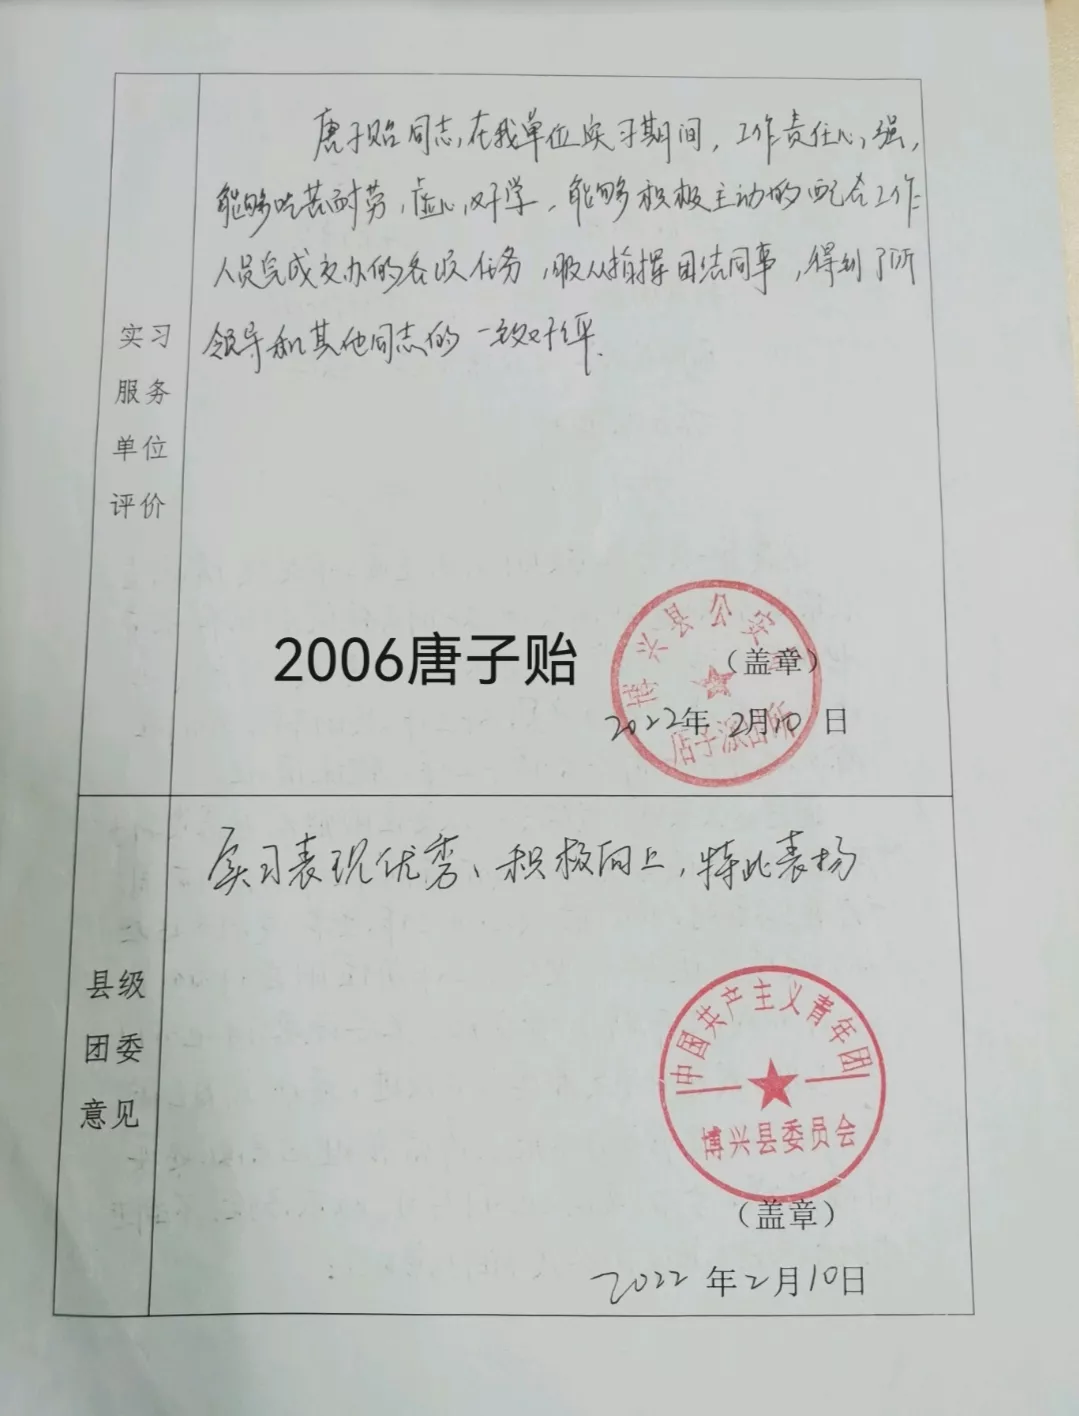 唐子贻同志，在我单位实习期间，工作责任心强，
能够吃苦耐劳，虚心好学，能够积极主动的配合工作
人员完成交办的各项任务，服从指挥团结同事，得到了所
领导和其他同志的一致好评.
实习
服务
单位
评价
2006唐子贻
博兴县公安局
店子派出所
（盖章）
2022年2月10日
实习表现优秀、积极向上，特此表扬
县级
团委
意见
中国共产主义青年团
博兴县委员会
（盖章）
2022年2月10日